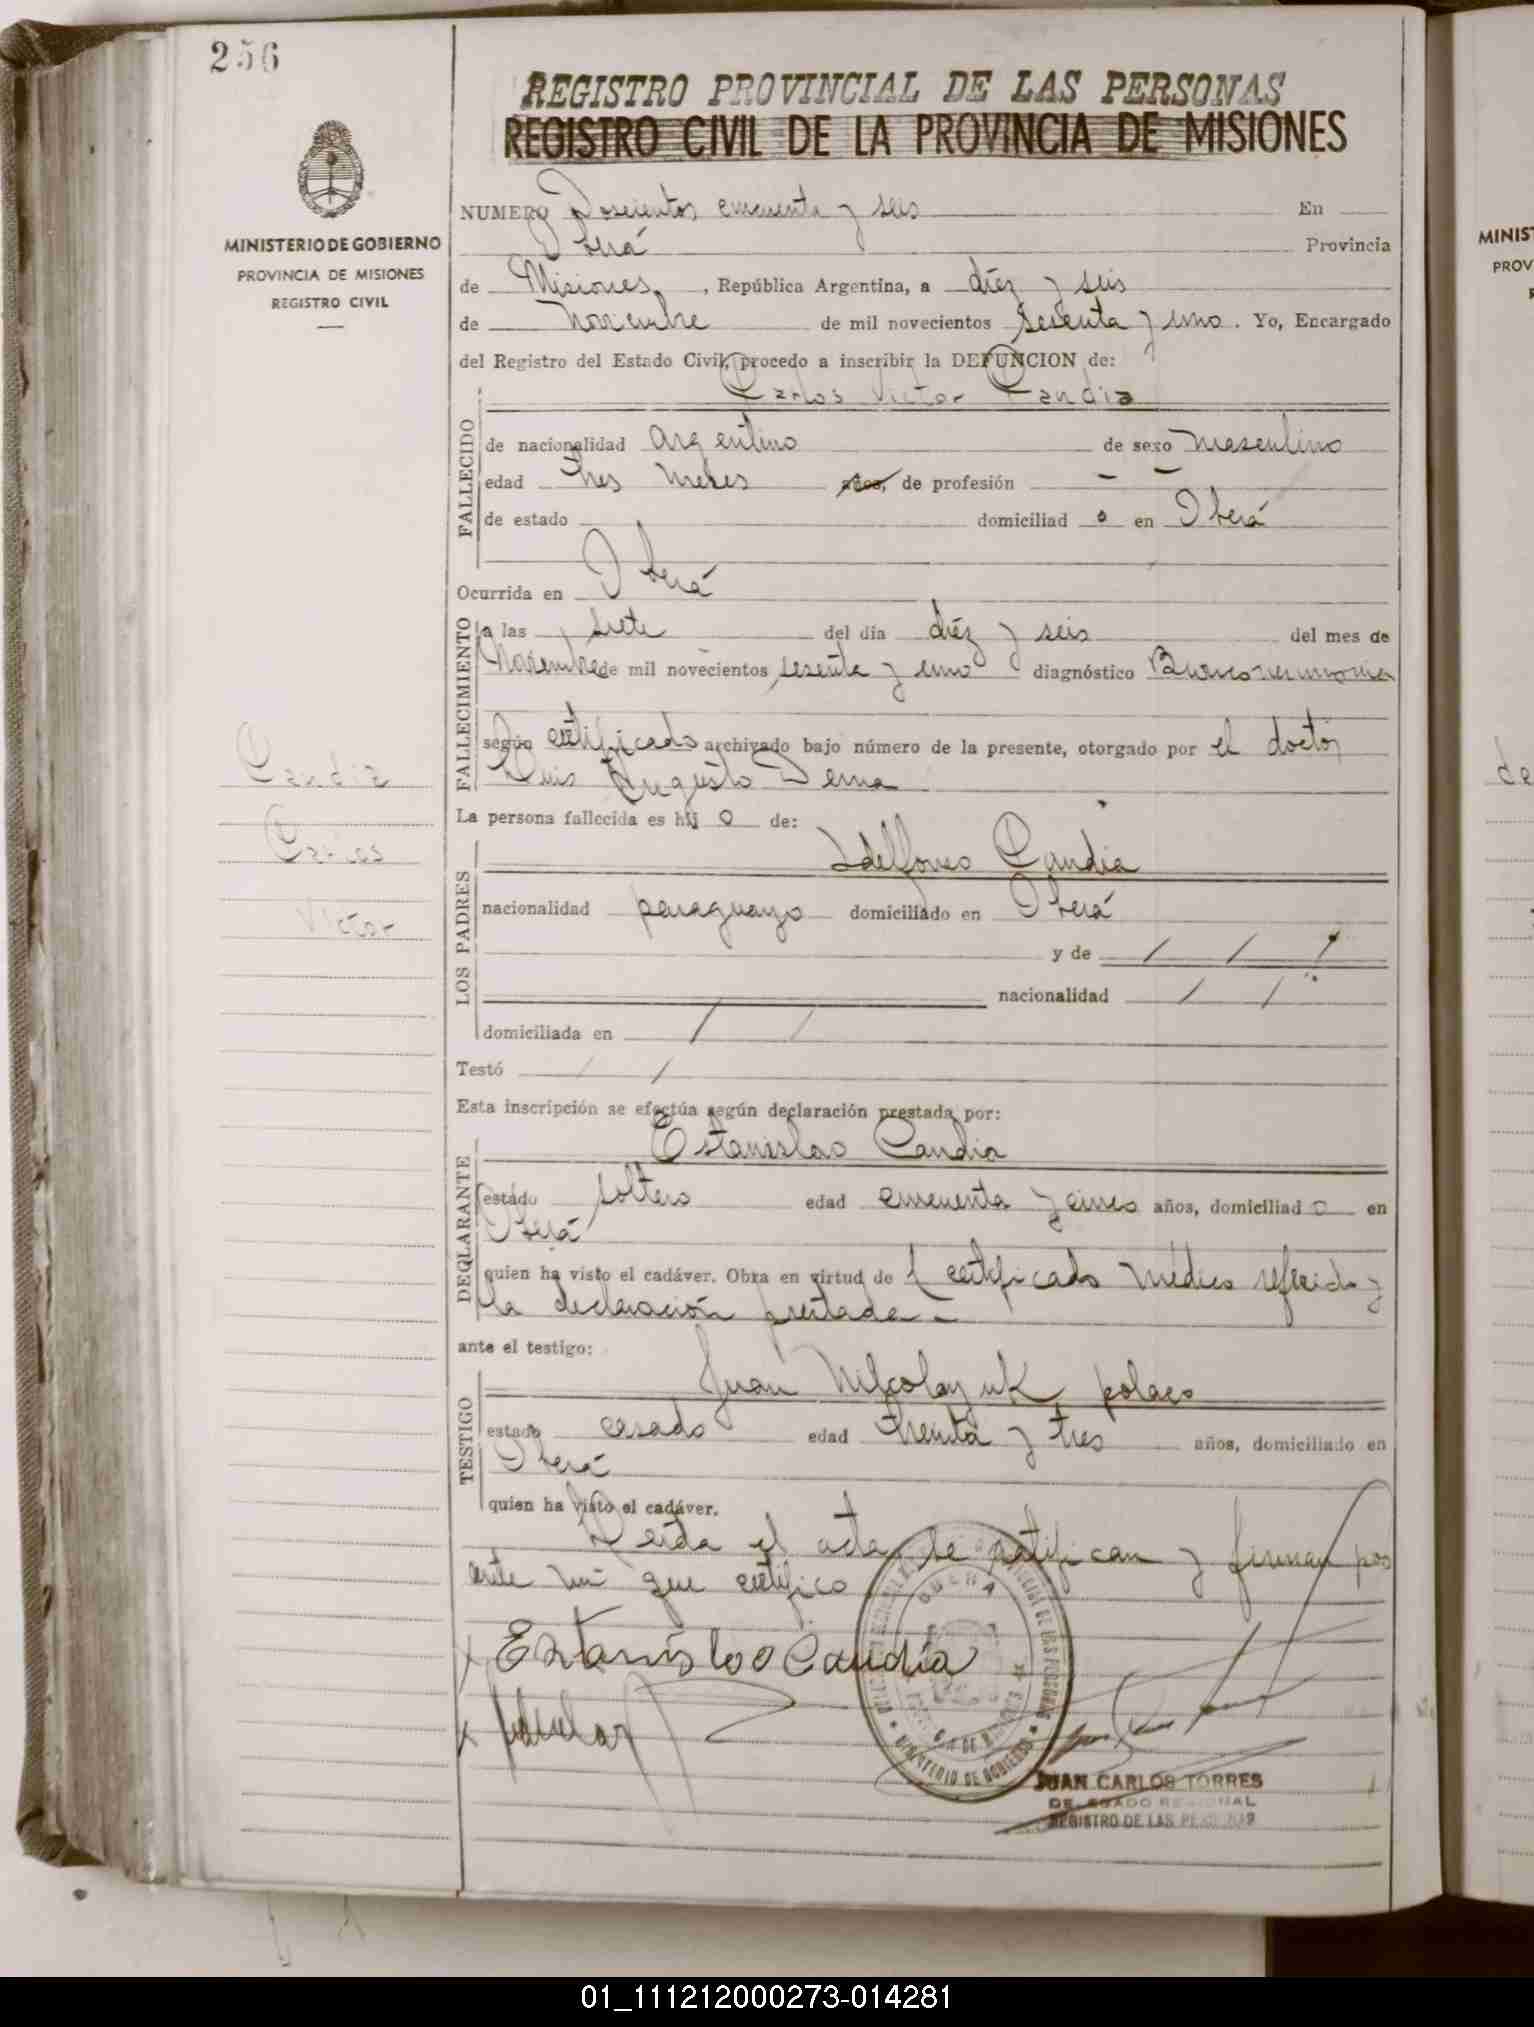 256
REGISTRO PROVINCIAL DE LAS PERSONAS
REGISTRO CIVIL DE LA PROVINCIA DE MISIONES
MINISTERIO DE GOBIERNO
PROVINCIA DE MISIONES
REGISTRO CIVIL
NUMERO Doscientos cincuenta y seis En
Oberá Provincia
de Misiones, República Argentina, a diez y seis
de Noviembre de mil novecientos sesenta y uno. Yo, Encargado
del Registro del Estado Civil, procedo a inscribir la DEFUNCION de:
Carlos Victor Candia
FALLECIDO
de nacionalidad argentino de sexo masculino
edad tres meses años, de profesión — —
de estado domiciliad o en Oberá
Ocurrida en Oberá
FALLECIMIENTO
a las siete del día diéz y seis del mes de
Noviembre de mil novecientos sesenta y uno diagnóstico Bronconeumonia
según certificado archivado bajo número de la presente, otorgado por el doctor
Luis Augusto Derna
Candia
Carlos
Victor
La persona fallecida es hij o de:
LOS PADRES
Idelfonso Candia
nacionalidad paraguayo domiciliado en Oberá
y de / / /
nacionalidad / /
domiciliada en / /
Testó / /
Esta inscripción se efectúa según declaración prestada por:
DECLARANTE
Estanislao Candia
estado soltero edad cincuenta y cinco años, domiciliad o en
Oberá
quien ha visto el cadáver. Obra en virtud de l certificado médico referido y
la declaración prestada.-
ante el testigo:
TESTIGO
Juan Nikolayuk polaco
estado casado edad treinta y tres años, domiciliado en
Oberá
quien ha visto el cadáver.
Leida el acta, se ratifican y firman por
ante mi que certifico
x Estanislao Candia
x
OBERA
MINISTERIO DE GOBIERNO
JUAN CARLOS TORRES
DELEGADO REGIONAL
REGISTRO DE LAS PERSONAS
MINIST
PROV
01_111212000273-014281